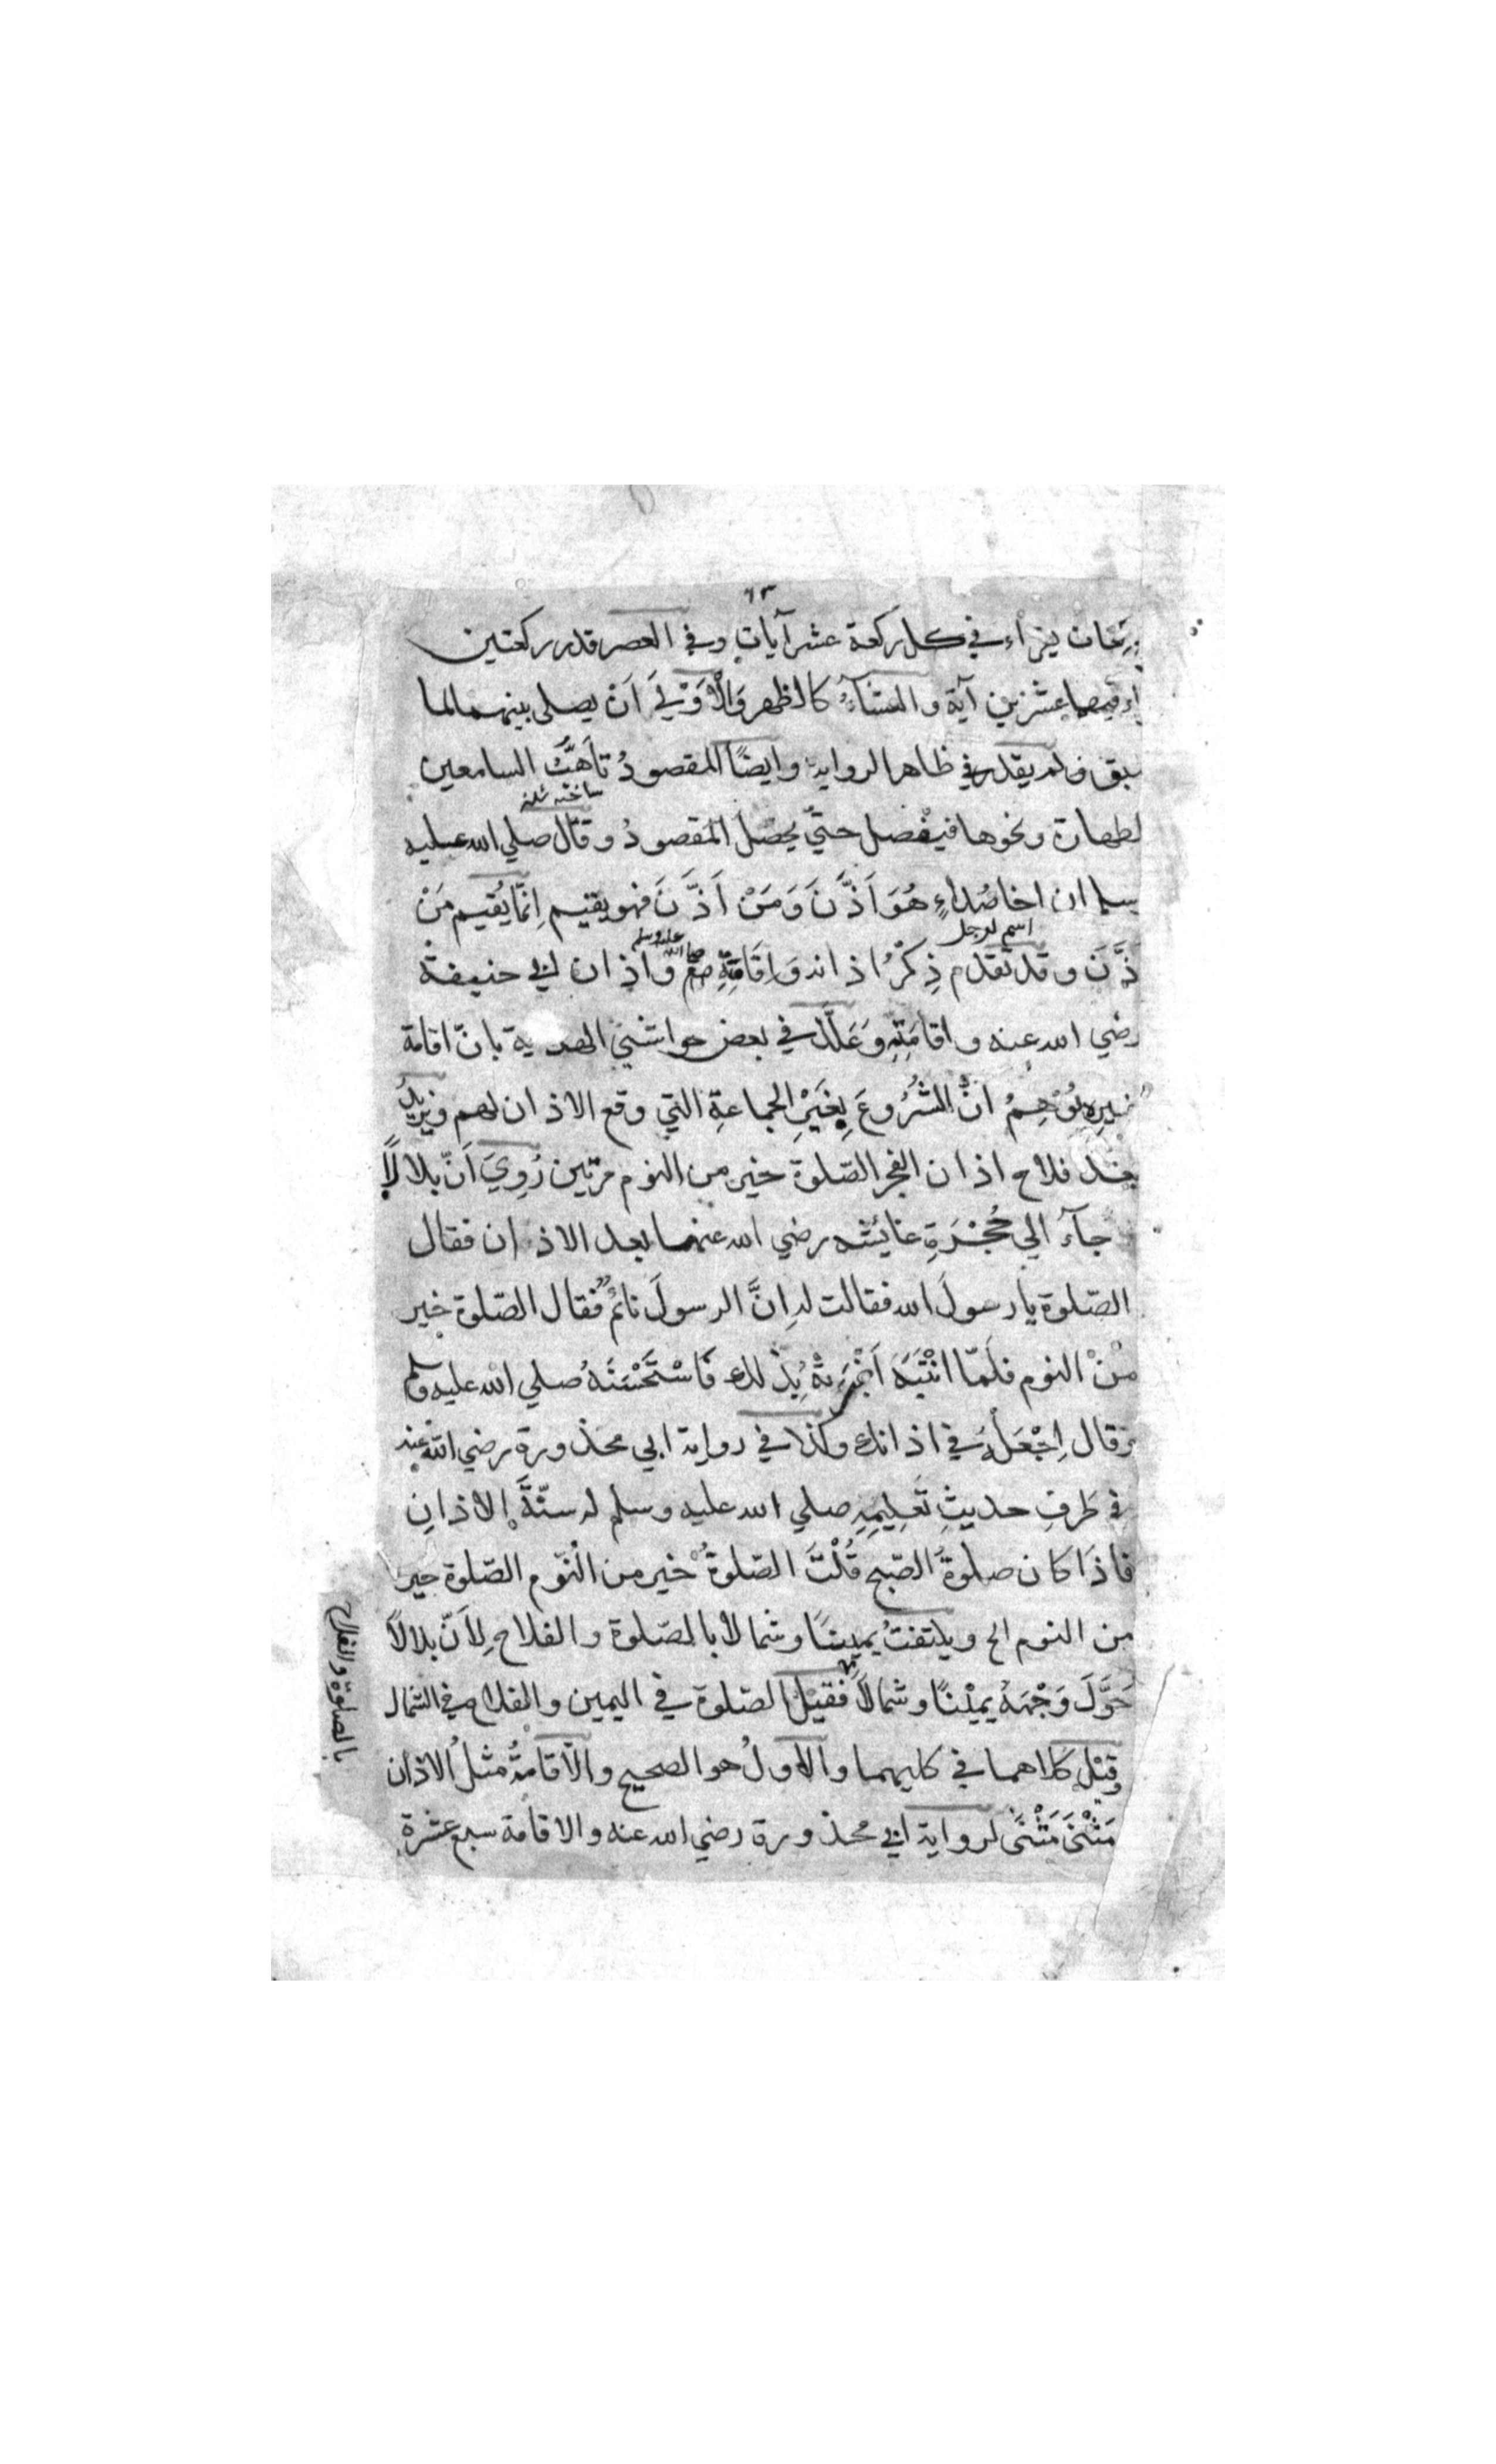 ١٣
يقراء في كل ركعة عشر آيات وفي العصر قدر ركعتين
فيهما عشرين آية والعشاءُ كالظهر وَالْاَوْلَي اَنْ يصلي بينهما لما
سبق ولم يقدر في ظاهر الرواية وايضًا المقصودُ تاَهُّبُ السامعين
ساخته شدن
لطهارة ونحوها فيفْصل حتيّ يحصل المقصودُ وقال صلي الله عليه
سلم ان اخا صُداءٍ هُوَ اَذَّنَ وَمَنْ اَذَّنَ فهو يقيم اِنّمَا يُقيم مَنْ
اسم لرجل
ذَّنَ وقد تقدم ذِكْرُ اذانه وَاِقَامَتِهِ صلي الله عليه وسلم واذان ابي حنيفة
رضي الله عنه واقامَتِهِ وَعَلَّلَ في بعض حواشي الهداية بانّ اقامة
غيره يُوْهِمُ انَّ الشُرُوعَ بِغَيْرِ الجماعةِ التي وقع الاذان لهم ويزيدُ
بعد فلاح اذان الفجر الصّلوة خير من النوم مرّتين رُوِيَ اَنّ بلالاً
جآءَ الي حُجْرَةِ عائشه رضي الله عنهما بعد الاذان فقال
الصّلوة يا رسولَ الله فقالت له اِنَّ الرسولَ نائمٌ فقال الصّلوة خير
مِنْ النوم فلَمّا انْتَبَهَ اَخْبَرَتْهُ بِذلك فَاسْتَحْسَنَهُ صلي الله عليه وسلم
وقال اِجْعَلْهُ في اذانك وكذا في رواية ابي محذورة رضي الله عنه
في طَرفِ حديثِ تَعلِيمِهِ صلي الله عليه وسلم له سنّةَ الاذانِ
فاذَا كان صلوةُ الصّبح قُلْتَ الصّلوةُ خير من النّوم الصّلوة خير
من النوم الخ ويلتفتُ يمينًا وشمالا بالصّلوة والفلاح لِاَنّ بلالاً
حَوَّلَ وَجْهَهُ يمِيْنًا وشمالًا فقيْل الصّلوة في اليمين والفلاح في الشمال
وقيْل كلاهما في كليهما والاولُ هو الصحيح والاقامةُ مثلُ الاذان
مَثْنَي مَثْنَي لرواية ابي محذورة رضي الله عنه والاقامة سبع عشرة
بالصلوة والفلاح